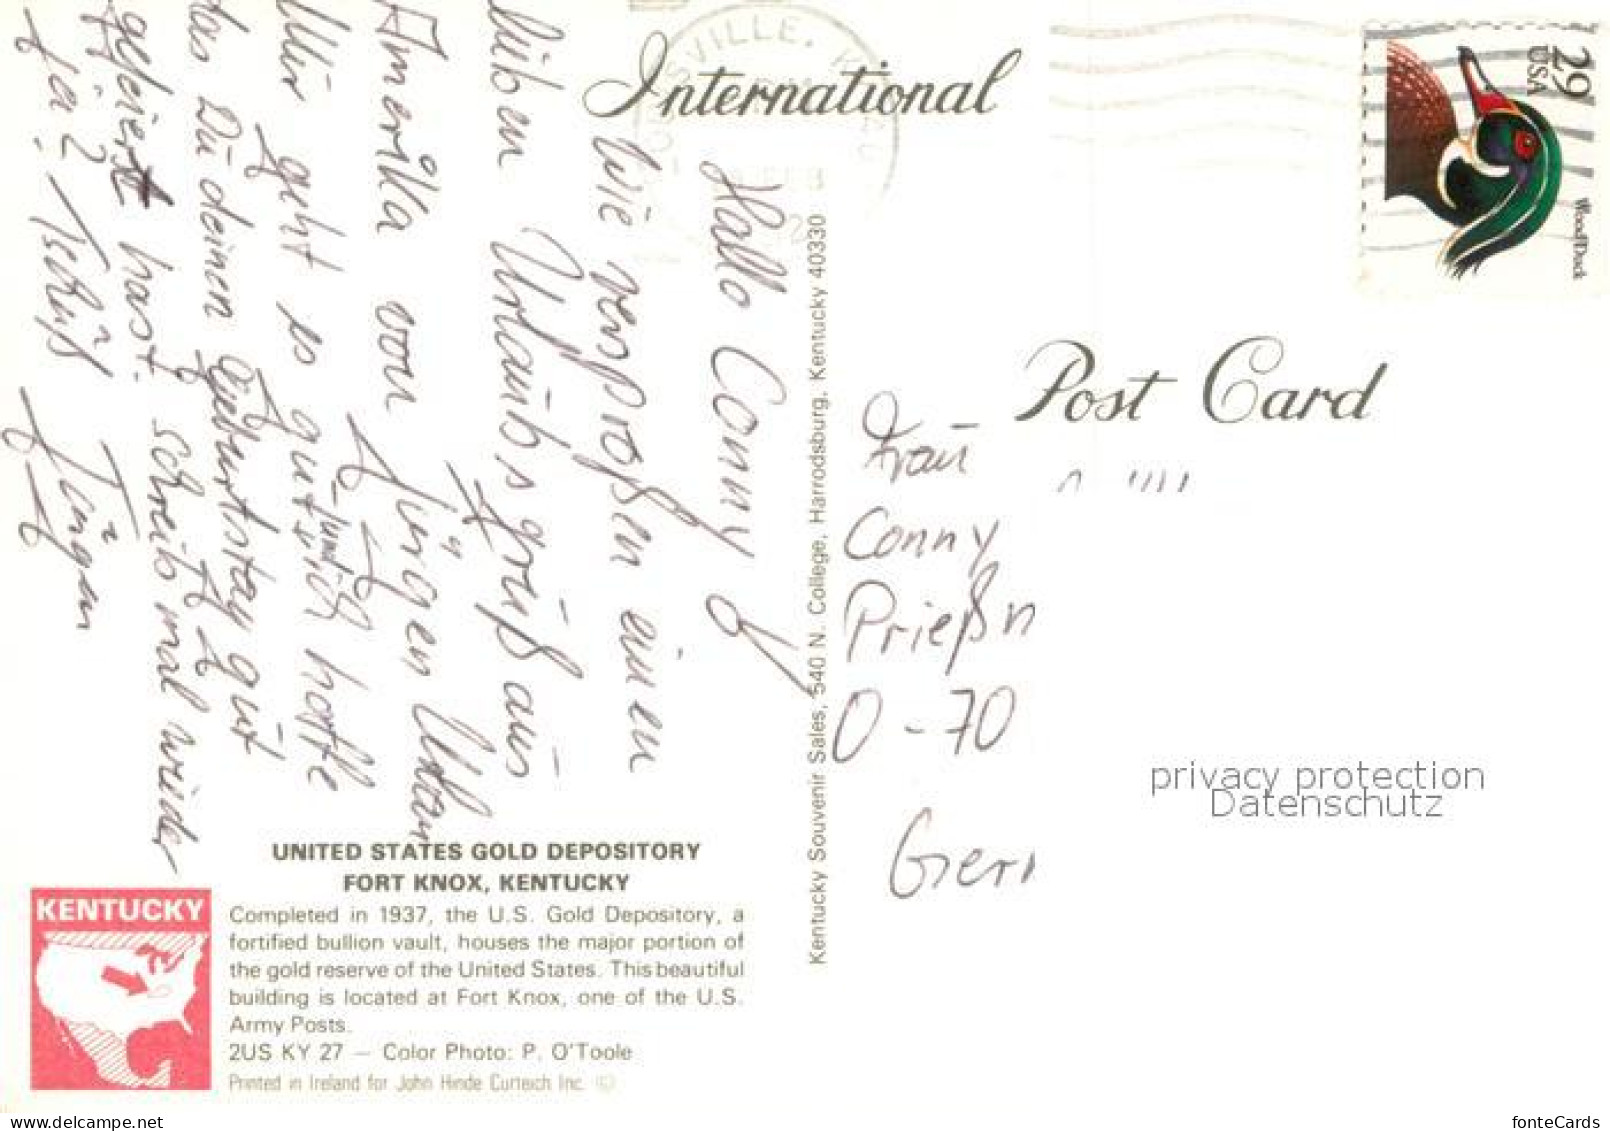 International
SVILLE, K
29
USA
Wood Duck
Post Card
Hallo Conny
Wie versproßen einen
lieben Urlaubsgruß aus
Amerika von Jürgen
Mir geht es gut, ich hoffe
das Du deinen Geburtstag gut
gefeiert hast. schreib mal wieder
ja? Tschüß Jürgen
Kentucky Souvenir Sales, 540 N. College, Harrodsburg, Kentucky 40330
Frau
Conny
Prießn
O-70
Ger
privacy protection
Datenschutz
UNITED STATES GOLD DEPOSITORY
FORT KNOX, KENTUCKY
KENTUCKY
Completed in 1937, the U.S. Gold Depository, a
fortified bullion vault, houses the major portion of
the gold reserve of the United States. This beautiful
building is located at Fort Knox, one of the U.S.
Army Posts.
2US KY 27 — Color Photo: P. O'Toole
Printed in Ireland for John Hinde Curteich Inc. ©
www.delcampe.net
fonteCards